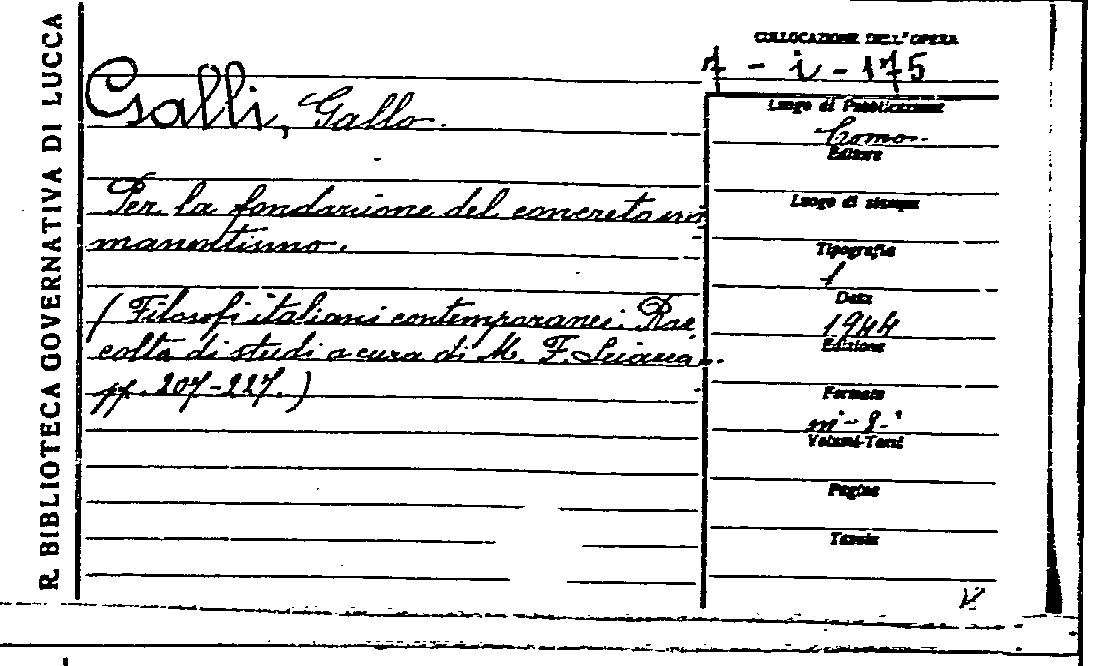 R. BIBLIOTECA GOVERNATIVA DI LUCCA
COLLOCAZIONE DELL'OPERA
7 - i - 175
Galli, Gallo.
Luogo di Pubblicazione
Como
Editore
Per la fondazione del concreto im
manentismo.
Luogo di stampa
Tipografia
(Filosofi italiani contemporanei. Rac
colta di studi a cura di M. F. Sciacca.
pp. 207-227.)
Data
1944
Edizione
Formato
in-8°
Volumi-Tomi
Pagine
Tavole